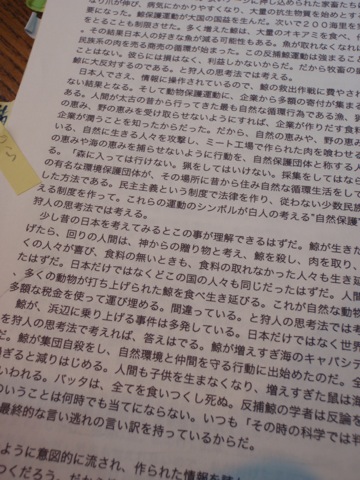 なり爪が伸び、病気にかかりやすくなり、大量の抗生物質を始めと
ージに押し込められた家畜たち
る。鯨保護運動が大国の国益を生んだ。次いで200海里を
をとることも制限させた。多く増えた鯨は、大量のオキアミを食べ、
その結果日本人の好きな魚が減る可能性もある。魚が取れなくなれ
民族系の肉を売る商売の循環が始まった。この反捕鯨運動は強まるこ
ことはない。彼らには損はなく、利益しかないからだ。だから牧畜の
鯨に大反対するのである。と狩人の思考法では考える。
日本人でさえ、情報に操作されているので、鯨の救出作戦に費やされ
ない結果となる。そして動物保護運動に、企業から多額の寄付が集ま
ある。人間が太古の昔から行ってきた最も自然な循環行為である漁、猟
の恵み、野の恵みを受け取らせないようにすれば、企業が作りだす食
企業が潤うことを知ったからだった。だから、自然の恵みや、野の恵み
いる、自然に生きる人々を攻撃し、ミート工場で作られた肉を喰わせ
の恵みや海の恵みを捕らせないように行動を、自然保護団体と称する人
る。「森に入っては行けない。猟をしてはいけない。採集をしてはなら
の有名な環境保護団体が、その場所に昔から住み自然な循環生活をして
した方法である。民主主義という制度で法律を作り、従わない少数民族
える制度を作って。これらの運動のシンボルが白人の考える"自然保護
狩人の思考法では考える。
少し昔の日本を考えてみるとこの事が理解できるはずだ。鯨が生きた
げたら、回りの人間は、神からの贈り物と考え、鯨を殺し、肉を取り、
くの人々が喜び、食料の無いときも、食料の取れなかった人々も生き延
たはずだ。日本だけではなくどこの国の人々も同じだったはずだ。人間
、多くの動物が打ち上げられた鯨を食べ生き延びる。これが自然な動物
多額な税金を使って運び埋める。間違っている。と狩人の思考法では考
鯨が、浜辺に乗り上げる事件は多発している。日本だけではなく世界
を狩人の思考法で考えれば、答えはでる。鯨が増えすぎ海のキャパシテ
だ。鯨が集団自殺をし、自然環境と仲間を守る行動に出始めたのだ。
過ぎると減りはじめる。人間も子供を生まなくなり、増えすぎた鼠は海
いわれる。バッタは、全てを食いつくし死ぬ。反捕鯨の学者は反論を
いうことは何時でも当てにならない。いつも「その時の科学では判
最終的な言い逃れの言い訳を持っているからだ。
ように意図的に流され、作られた情報を